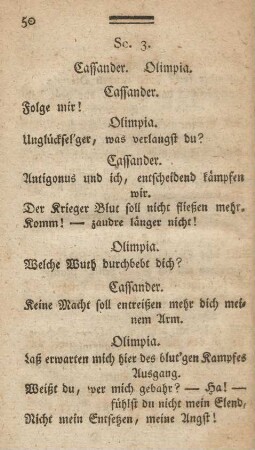 50
Sc. 3.
Cassander. Olimpia.
Cassander.
Folge mir!
Olimpia.
Unglücksel'ger, was verlangst du?
Cassander.
Antigonus und ich, entscheidend kämpfen
wir.
Der Krieger Blut soll nicht fließen mehr.
Komm! — zaudre länger nicht!
Olimpia.
Welche Wuth durchbebt dich?
Cassander.
Keine Macht soll entreißen mehr dich mei-
nem Arm.
Olimpia.
Laß erwarten mich hier des blut'gen Kampfes
Ausgang.
Weißt du, wer mich gebahr? — Ha! —
fühlst du nicht mein Elend,
Nicht mein Entsetzen, meine Angst!